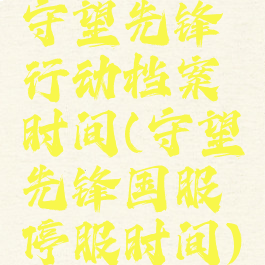 守望先锋
行动档案
时间(守望
先锋国服
停服时间)